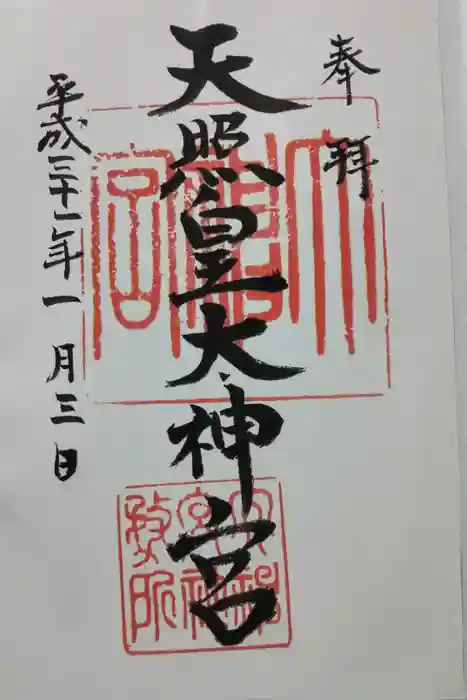 奉拝
天照皇大神宮
平成三十一年一月三日
大神宮